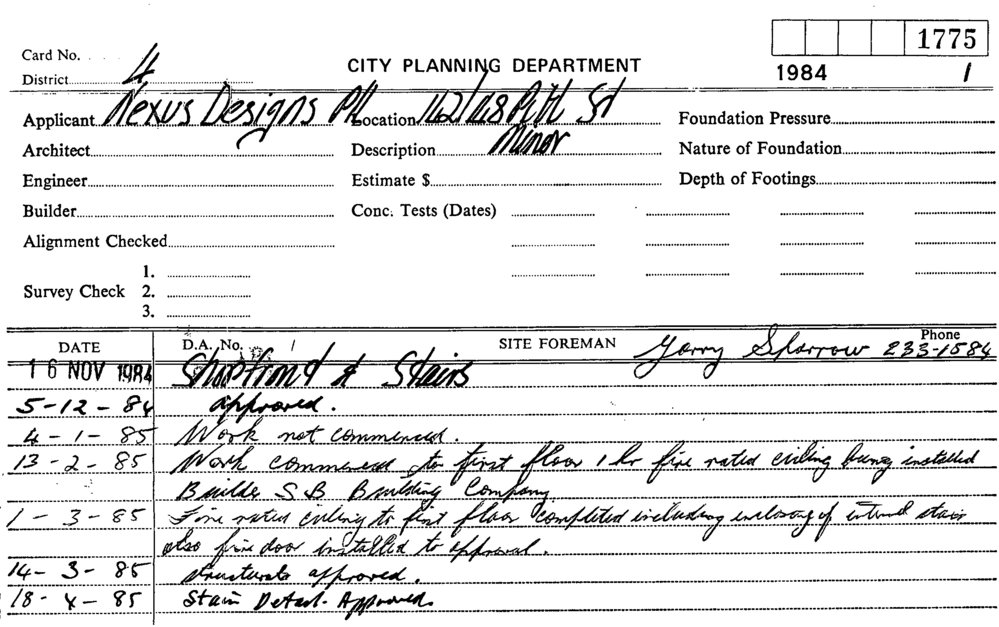 1775
Card No.
District 4
CITY PLANNING DEPARTMENT
1984 1
Applicant Nexus Designs P/L Location 142/148 Pitt St Foundation Pressure
Architect Description Minor Nature of Foundation
Engineer Estimate $ Depth of Footings
Builder Conc. Tests (Dates)
Alignment Checked
1.
Survey Check 2.
3.
DATE D.A. No. / SITE FOREMAN Garry Sparrow Phone 233-1584
16 NOV 1984 Shopfront & Stairs
5-12-84 approved.
4-1-85 Work not commenced.
13-2-85 Work commenced to first floor 1 hr fire rated ceiling being installed
Builder S B Building Company
1-3-85 Fire rated ceiling to first floor completed including enclosing of internal stair
also fire door installed to approval.
14-3-85 structurals approved.
18-4-85 Stair Detail. Approved.